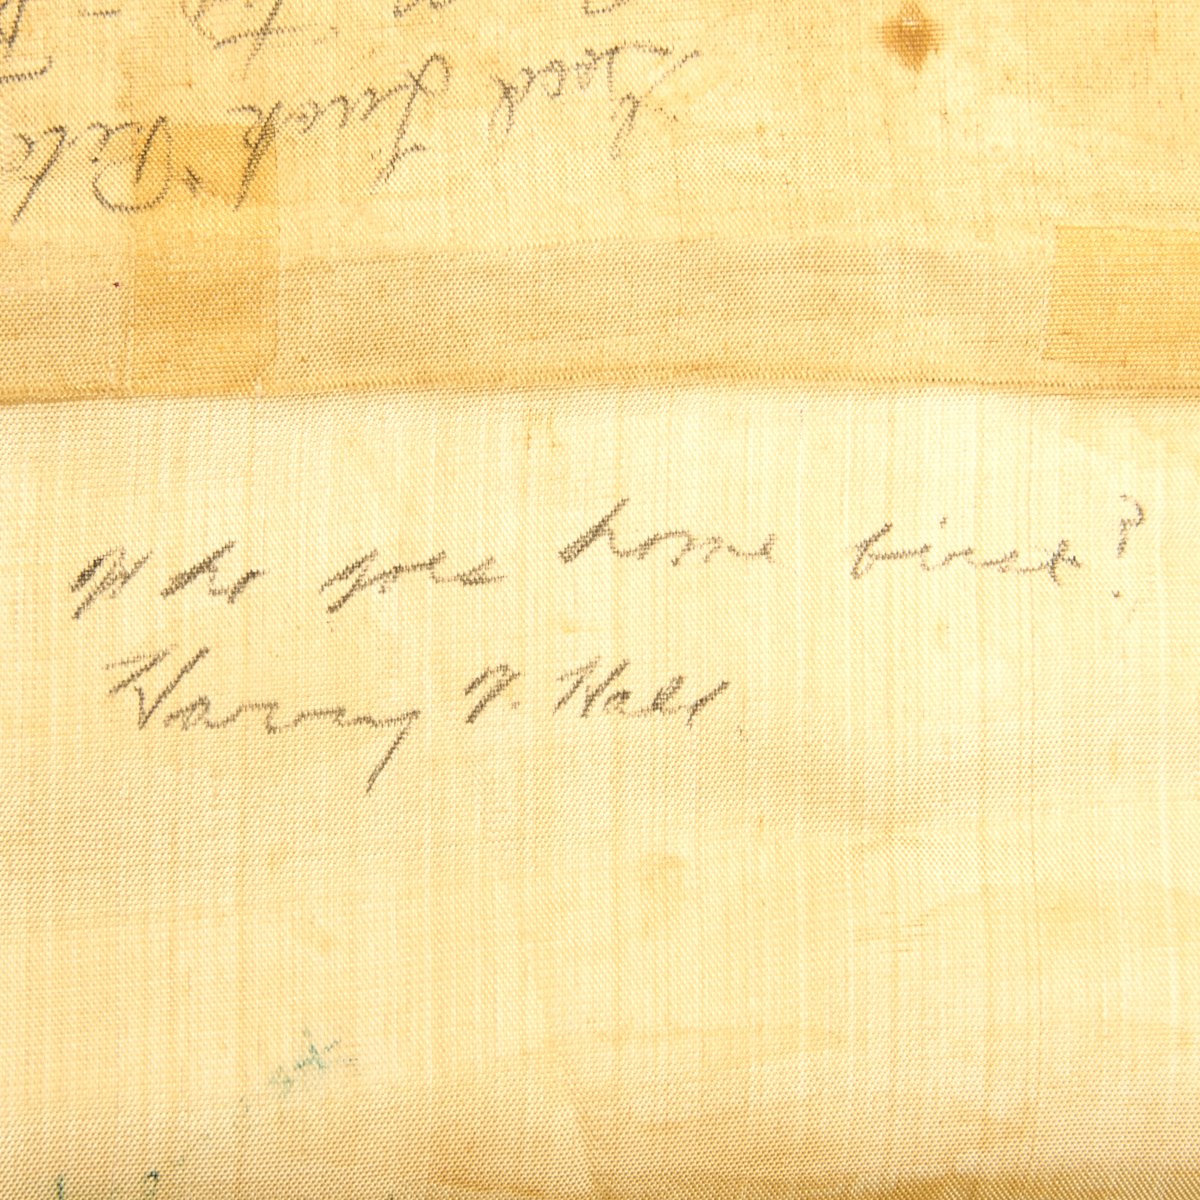 Good Luck Pete
Who goes home first?
Harvey W. Hall